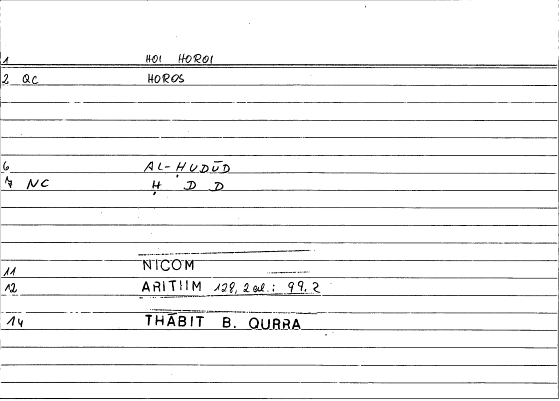 1 HOI HOROI
2 QC HOROS
6 AL-ḤUDŪD
7 NC Ḥ D D
11 NICOM
12 ARITIIM 128, 2 al.: 99.2
14 THĀBIT B. QURRA